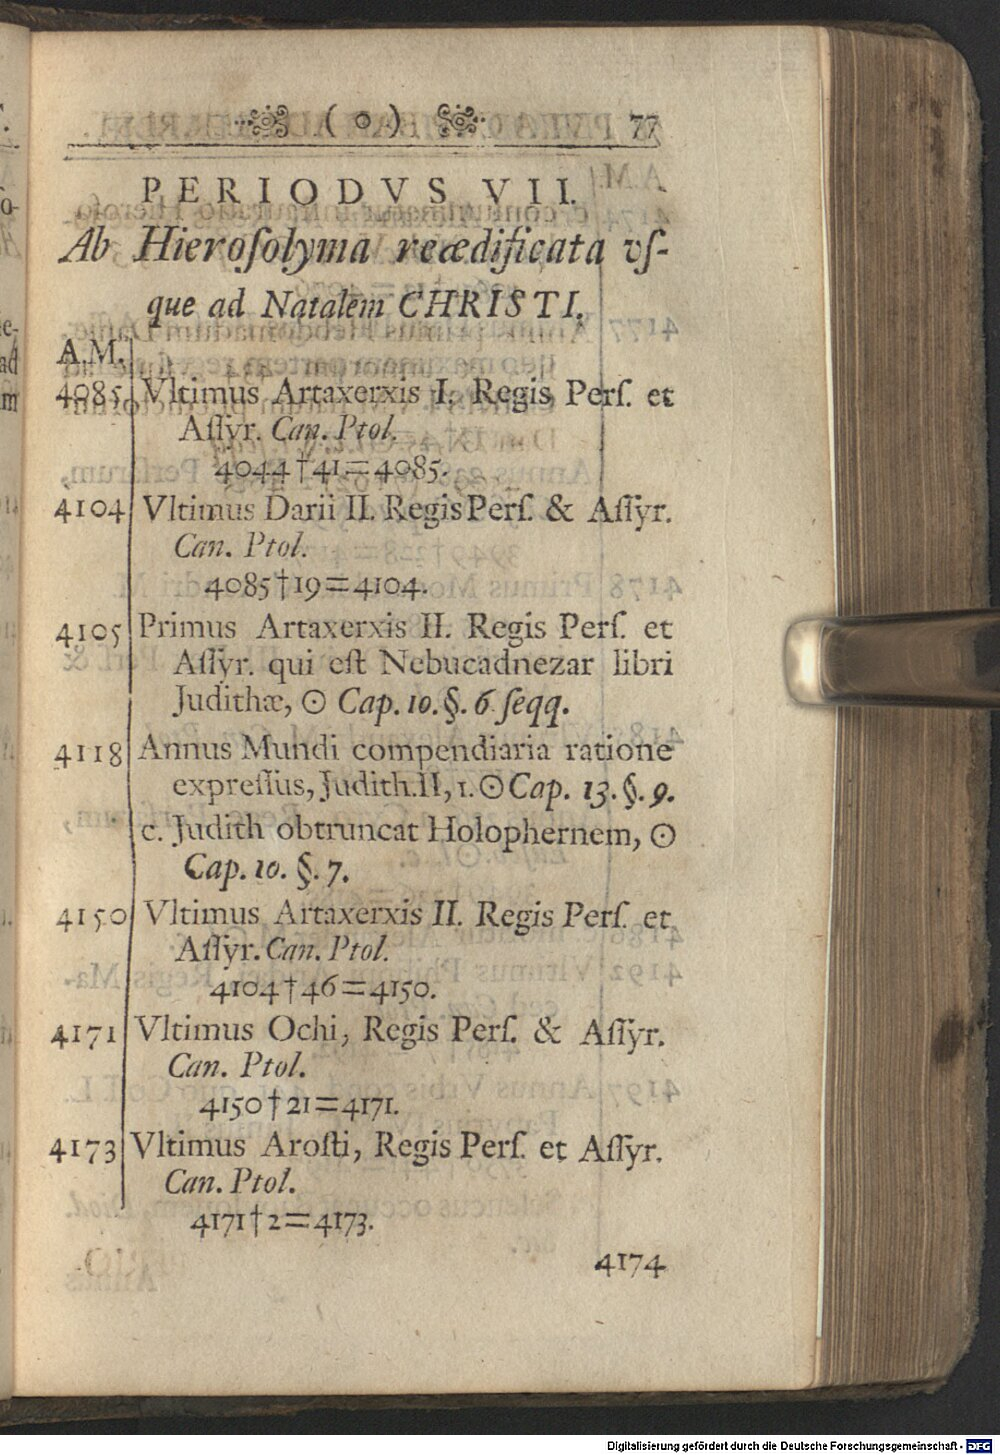 ( o ) 77
PERIODVS VII.
Ab Hieroſolyma reædificata vſ-
que ad Natalem CHRISTI.
A.M.
4085 Vltimus Artaxerxis I. Regis Perſ. et
Aſſyr. Can. Ptol.
4044†41=4085.
4104 Vltimus Darii II. Regis Perſ. & Aſſyr.
Can. Ptol.
4085†19=4104.
4105 Primus Artaxerxis II. Regis Perſ. et
Aſſyr. qui eſt Nebucadnezar libri
Judithæ, ☉ Cap. 10. §. 6 ſeqq.
4118 Annus Mundi compendiaria ratione
expreſſus, Judith. II, 1. ☉ Cap. 13. §. 9.
c. Judith obtruncat Holophernem, ☉
Cap. 10. §. 7.
4150 Vltimus Artaxerxis II. Regis Perſ. et
Aſſyr. Can. Ptol.
4104†46=4150.
4171 Vltimus Ochi, Regis Perſ. & Aſſyr.
Can. Ptol.
4150†21=4171.
4173 Vltimus Aroſti, Regis Perſ. et Aſſyr.
Can. Ptol.
4171†2=4173.
4174
Digitalisierung gefördert durch die Deutsche Forschungsgemeinschaft - DFG